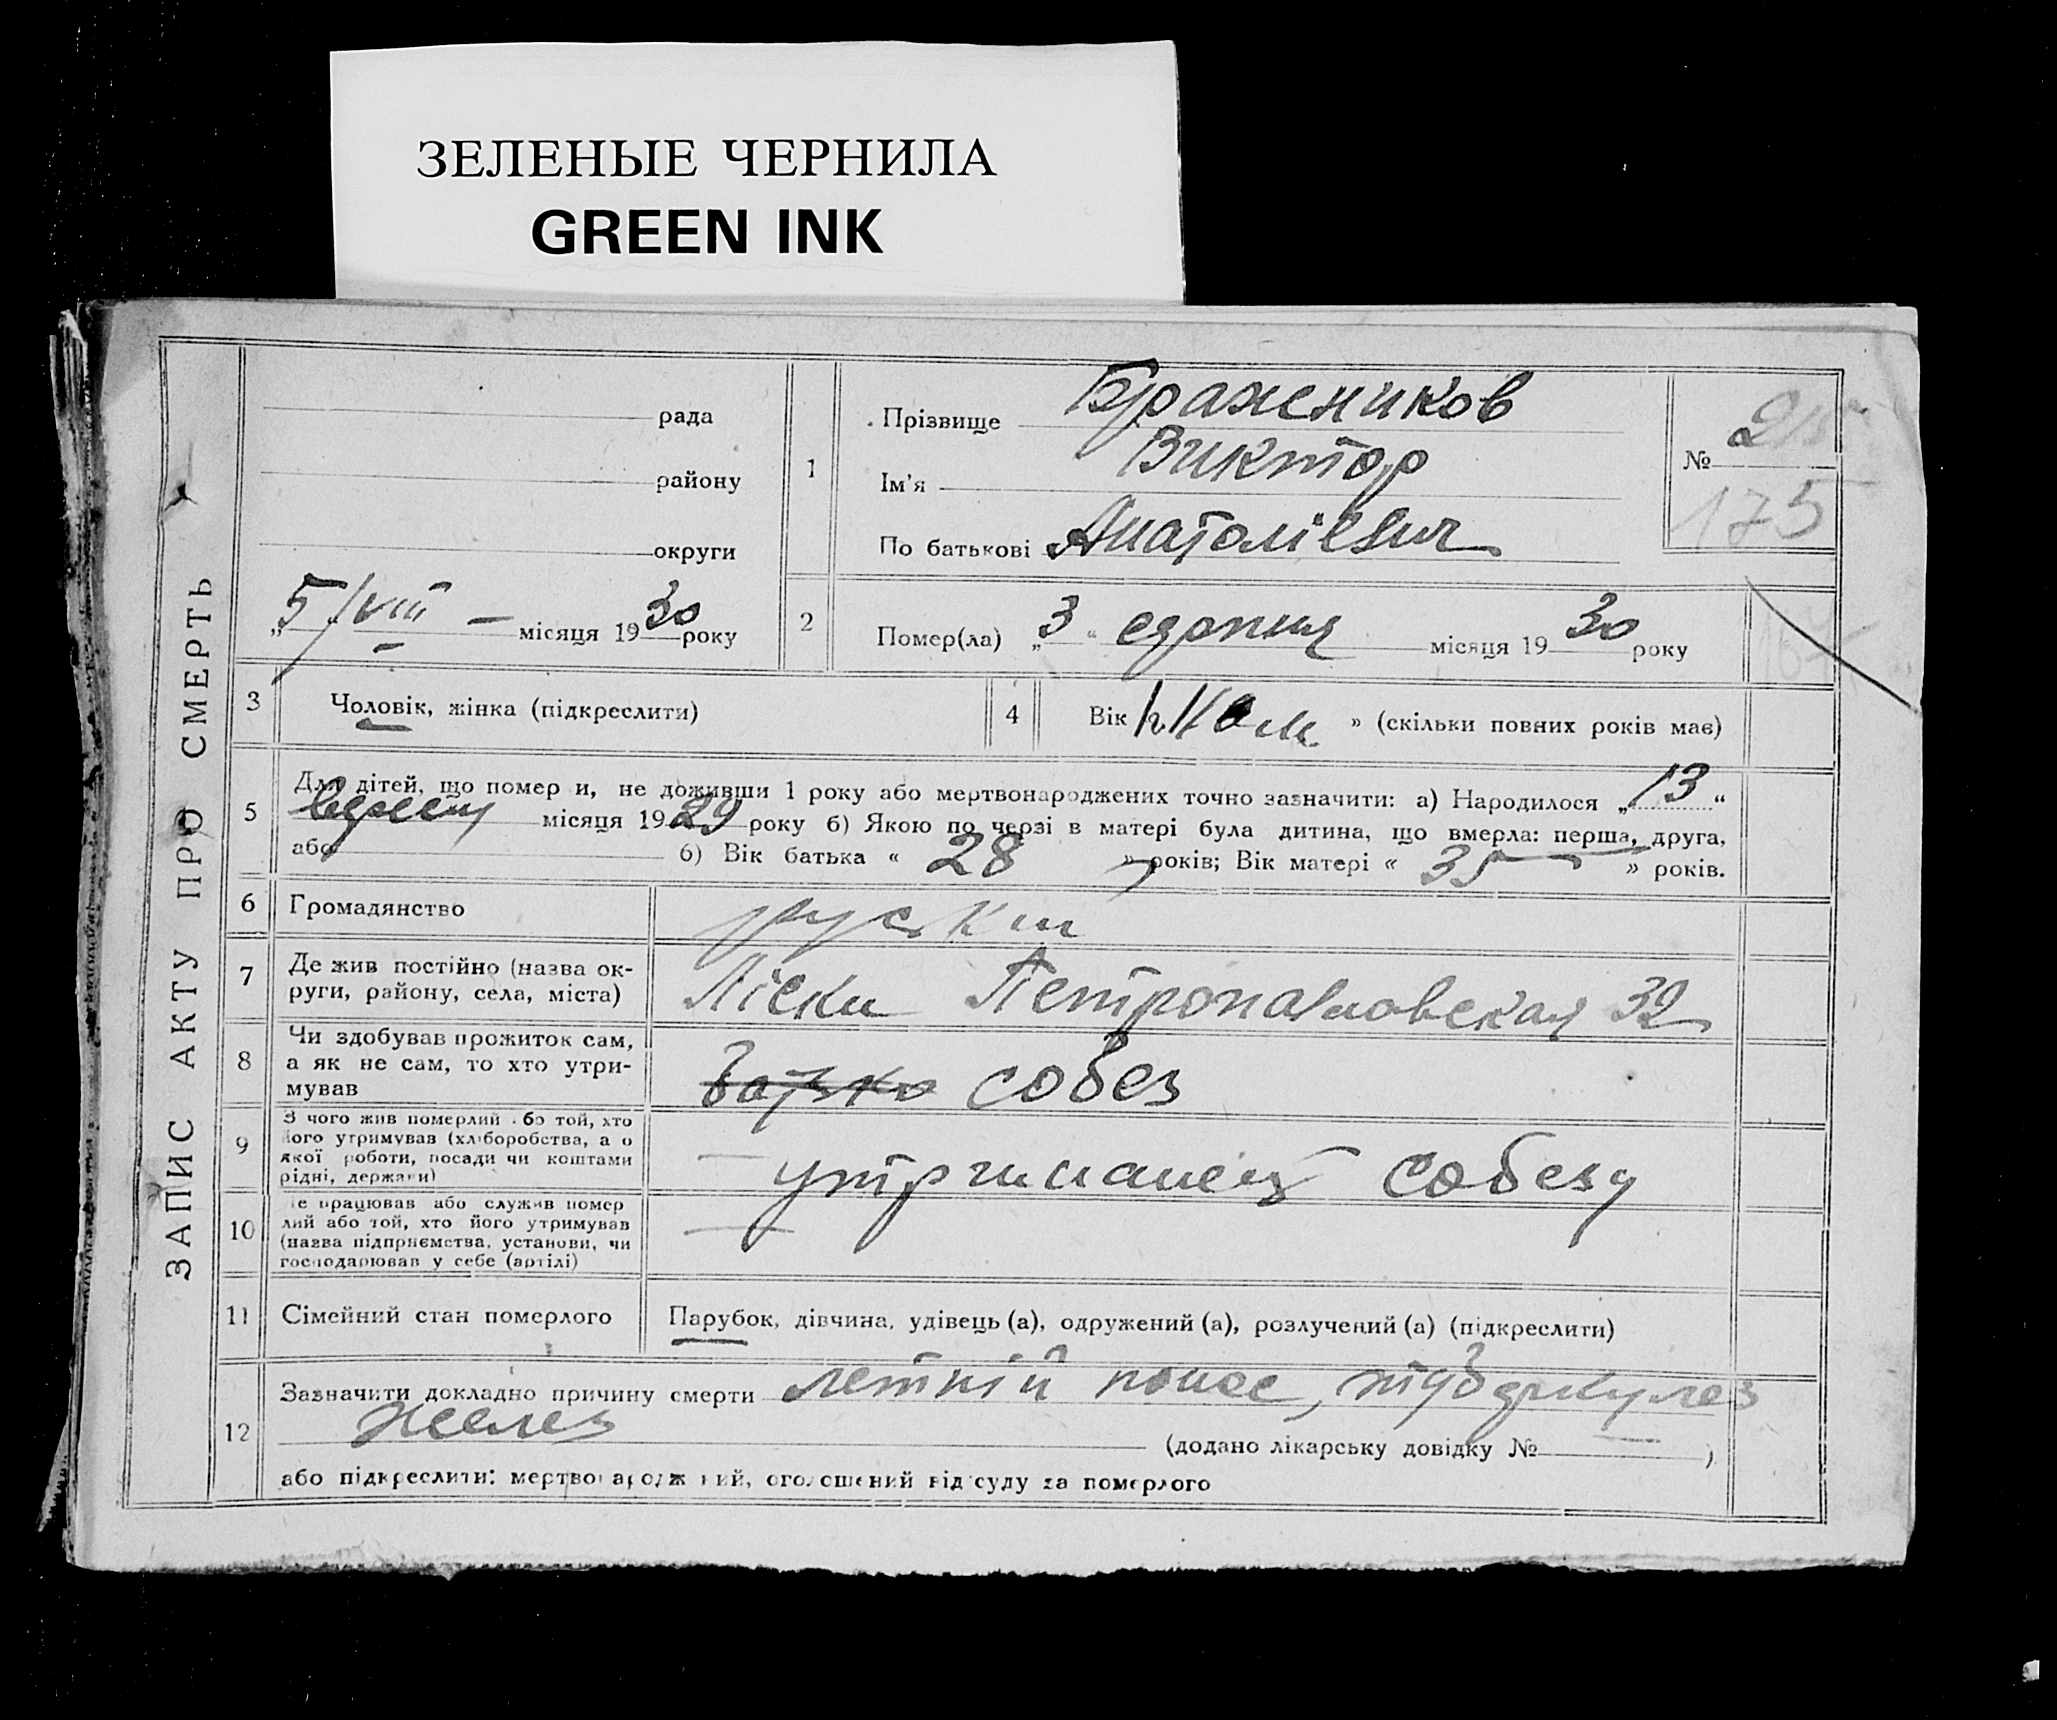 ЗЕЛЕНЫЕ ЧЕРНИЛА
GREEN INK
ЗАПИС АКТУ ПРО СМЕРТЬ
рада
району
округи
„5/VIII — місяця 1930 року
1
Прізвище Бражеников
Ім'я Виктор
По батькові Анатолієвич
№
175
2
Помер(ла) „3" серпня місяця 1930 року
3
Чоловік, жінка (підкреслити)
4
Вік » (скільки повних років має)
5
Для дітей, що померли, не доживши 1 року або мертвонароджених точно зазначити: а) Народилося „13"
місяця 1929 року б) Якою по черзі в матері була дитина, що вмерла: перша, друга,
або б) Вік батька « 28 » років; Вік матері « 35 » років.
6
Громадянство
руский
7
Де жив постійно (назва ок-
руги, району, села, міста)
Піски Петропавловская 32
8
Чи здобував прожиток сам,
а як не сам, то хто утри-
мував
собез
9
З чого жив померлий або той, хто
його утримував (хліборобства, а о
якої роботи, посади чи коштами
рідні, держави)
— утриманець собезу
10
Де працював або служив помер
лий або той, хто його утримував
(назва підприємства, установи, чи
господарював у себе (артілі)
—
11
Сімейний стан померлого
Парубок, дівчина, удівець (а), одружений (а), розлучений (а) (підкреслити)
12
Зазначити докладно причину смерти летній понос, туберкулез
желез
(додано лікарську довідку № )
або підкреслити: мертвонароджений, оголошений від суду за померлого